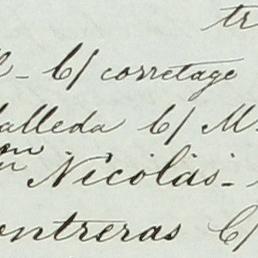 tr
- C/ corretage
alleda C/ M
on Nicolás -
ontreras C/